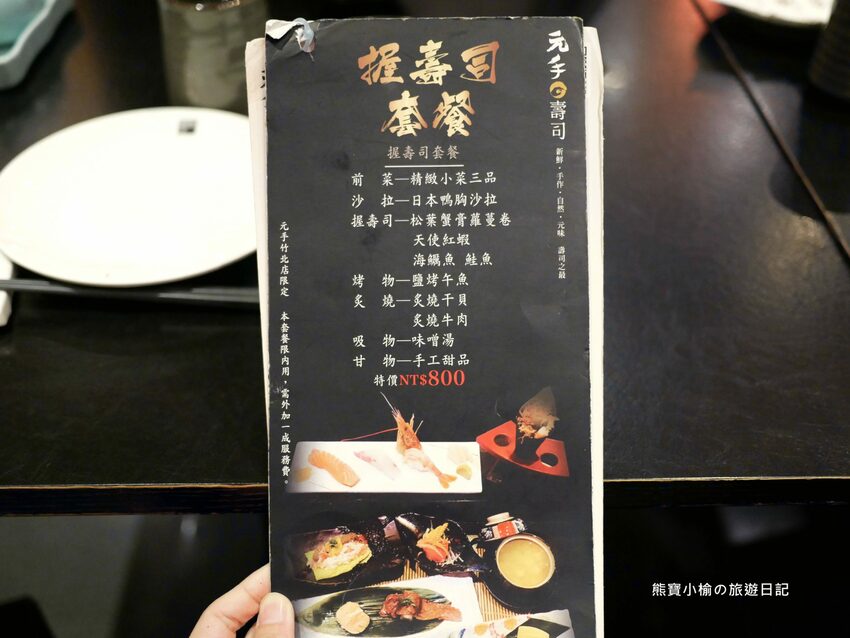 握壽司
套餐
握壽司套餐
前 菜—精緻小菜三品
沙 拉—日本鴨胸沙拉
握壽司—松葉蟹膏蘿蔓卷
天使紅蝦
海鱺魚 鮭魚
烤 物—鹽烤午魚
炙 燒—炙燒干貝
炙燒牛肉
吸 物—味噌湯
甘 物—手工甜品
特價NT$800
元手壽司
新鮮・手作・自然・元味 壽司之最
元手竹北店限定 本套餐限內用，需外加一成服務費。
熊寶小榆の旅遊日記